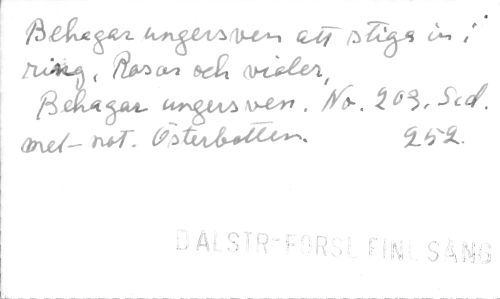 Behagar ungersven att stiga in i
ring, Rosor och violer,
Behagar ungersven. No. 203. Sid.
mel-not. Österbotten. 252.
DALSTR-FORSL FINL SÅNG